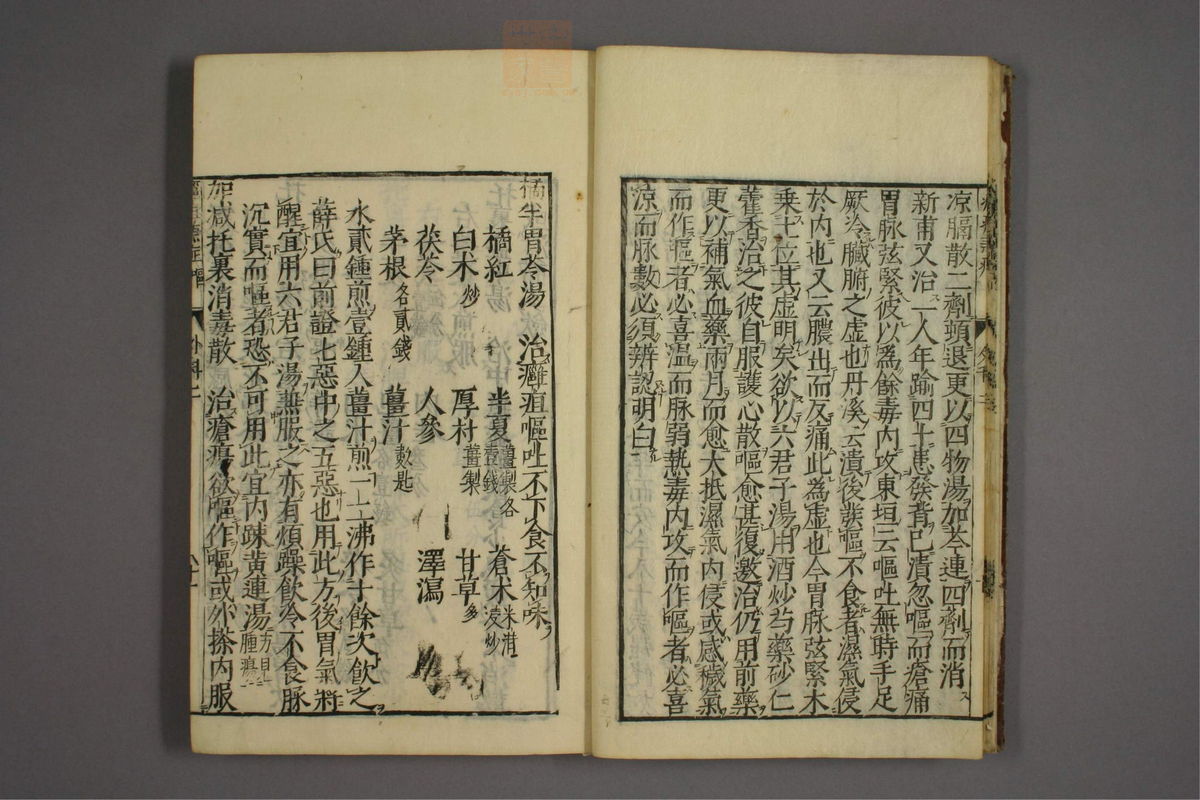 凉膈散二劑頓退更以四物湯加芩連四劑而消
新甫又治一人年踰四十患發背已潰忽嘔而瘡痛
胃脉弦緊彼以為餘毒内攻東垣云嘔吐無時手足
厥冷臟腑之虛也丹溪云潰後發嘔不食者濕氣侵
於内也又云膿出而反痛此為虛也今胃脉弦緊木
乗土位其虛明矣欲以六君子湯用酒炒芍藥砂仁
藿香治之彼自服護心散嘔愈甚復邀治仍用前藥
更以補氣血藥兩月而愈大抵濕氣内侵或感穢氣
而作嘔者必喜温而脉弱熱毒内攻而作嘔者必喜
凉而脉數必須辨認明白
橘半胃苓湯 治癰疽嘔吐不下食不知味
橘紅 半夏薑製各壹錢 蒼术米泔浸炒
白术炒 厚朴薑製 甘草多
茯苓 人參 澤瀉
茅根各貳錢 薑汁數匙
水貳鍾煎壹鍾入薑汁煎一二沸作十餘次飲之
薛氏曰前證七惡中之五惡也用此方後胃氣將
醒宜用六君子湯兼服之亦有煩躁飲冷不食脉
沉實而嘔者恐不可用此宜内疎黄連湯方見腫瘍
加减托裏消毒散 治瘡瘍欲嘔作嘔或外搽内服
外科二